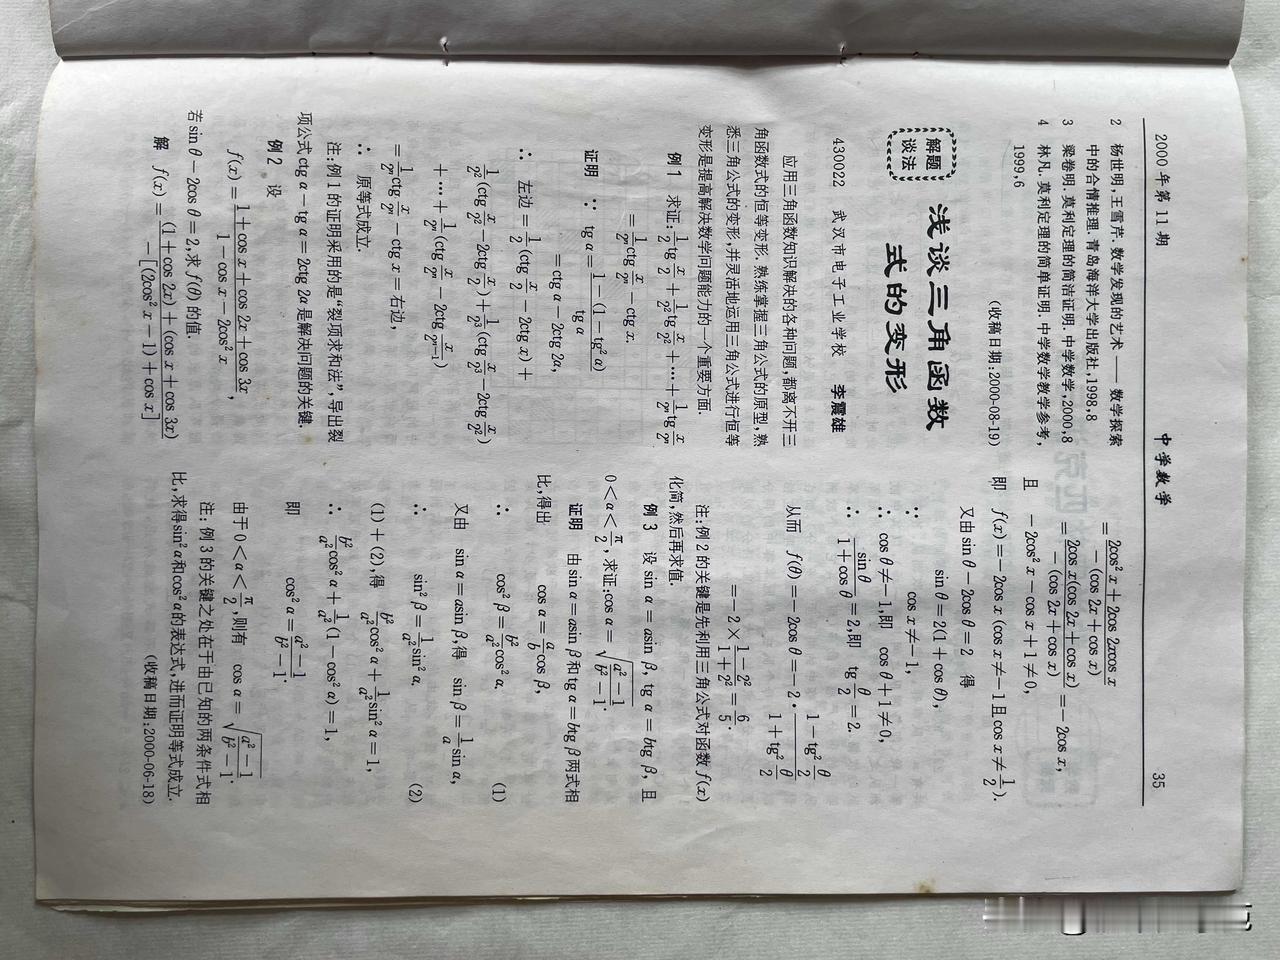 2000年第11期 中学数学 35
2 杨世明,王雪芹.数学发现的艺术——数学探索
中的合情推理.青岛海洋大学出版社,1998,8
3 梁卷明.莫利定理的简洁证明.中学数学,2000,8
4 林凡.莫利定理的简单证明.中学数学教学参考,
1999,6
(收稿日期:2000-08-19)
解题
谈法
浅谈三角函数
式的变形
430022 武汉市电子工业学校 李震雄
应用三角函数知识解决的各种问题,都离不开三
角函数式的恒等变形.熟练掌握三角公式的原型,熟
悉三角公式的变形,并灵活地运用三角公式进行恒等
变形是提高解决数学问题能力的一个重要方面.
例1 求证:1/2 tg x/2 + 1/2² tg x/2² + … + 1/2ⁿ tg x/2ⁿ
= 1/2ⁿ ctg x/2ⁿ − ctg x.
证明 ∵ tg α = (1 − (1 − tg²α))/tg α
= ctg α − 2ctg 2α,
∴ 左边 = 1/2 (ctg x/2 − 2ctg x) +
1/2² (ctg x/2² − 2ctg x/2) + 1/2³ (ctg x/2³ − 2ctg x/2²)
+ … + 1/2ⁿ (ctg x/2ⁿ − 2ctg x/2ⁿ⁻¹)
= 1/2ⁿ ctg x/2ⁿ − ctg x = 右边,
∴ 原等式成立.
注:例1的证明采用的是“裂项求和法”,导出裂
项公式 ctg α − tg α = 2ctg 2α 是解决问题的关键.
例2 设
f(x) = (1 + cos x + cos 2x + cos 3x)/(1 − cos x − 2cos² x),
若 sin θ − 2cos θ = 2,求 f(θ) 的值.
解 f(x) = ((1 + cos 2x) + (cos x + cos 3x))/(−[(2cos² x − 1) + cos x])
= (2cos² x + 2cos 2xcos x)/(−(cos 2x + cos x))
= (2cos x(cos 2x + cos x))/(−(cos 2x + cos x)) = − 2cos x,
且 − 2cos² x − cos x + 1 ≠ 0,
即 f(x) = − 2cos x (cos x ≠ − 1 且 cos x ≠ 1/2).
又由 sin θ − 2cos θ = 2 得
sin θ = 2(1 + cos θ),
∵ cos x ≠ − 1,
∴ cos θ ≠ − 1,即 cos θ + 1 ≠ 0,
∴ sin θ/(1 + cos θ) = 2,即 tg θ/2 = 2.
从而 f(θ) = − 2cos θ = − 2 · (1 − tg² θ/2)/(1 + tg² θ/2)
= − 2 × (1 − 2²)/(1 + 2²) = 6/5.
注:例2的关键是先利用三角公式对函数 f(x)
化简,然后再求值.
例3 设 sin α = asin β, tg α = btg β, 且
0 < α < π/2, 求证:cos α = √((a² − 1)/(b² − 1)).
证明 由 sin α = asin β 和 tg α = btg β 两式相
比,得出 cos α = a/b cos β,
∴ cos² β = b²/a² cos² α, (1)
又由 sin α = asin β,得 sin β = 1/a sin α,
∴ sin² β = 1/a² sin² α. (2)
(1) + (2),得 b²/a² cos² α + 1/a² sin² α = 1,
∴ b²/a² cos² α + 1/a² (1 − cos² α) = 1,
即 cos² α = (a² − 1)/(b² − 1).
由于 0 < α < π/2,则有 cos α = √((a² − 1)/(b² − 1)).
注: 例3的关键之处在于由已知的两条件式相
比,求得 sin² α 和 cos² α 的表达式,进而证明等式成立.
(收稿日期:2000-06-18)